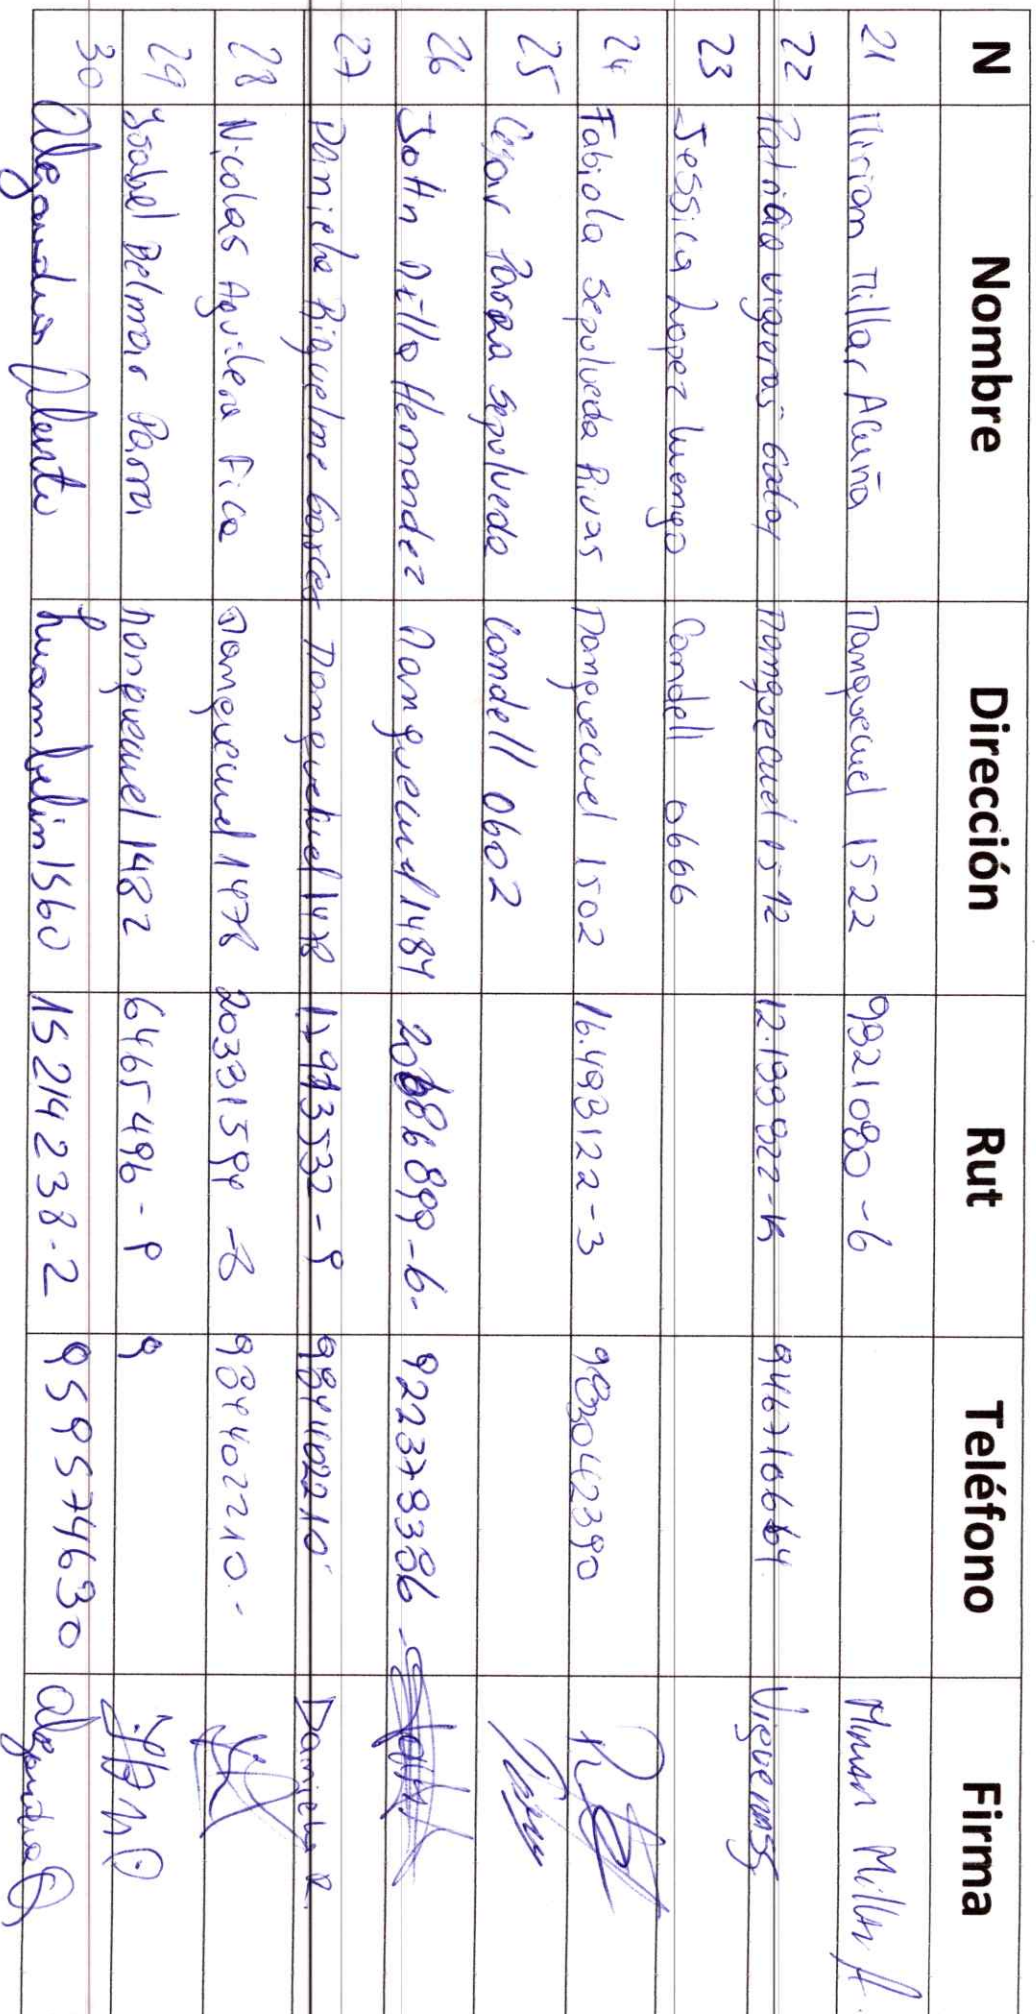 N Nombre Dirección Rut Teléfono Firma
21 Miriam Millar Acuña Manquecuel 1522 9921080-6 Miriam Millar A.
22 Patricia Vigueras Godoy Manquecuel 1512 12.199922-K 946710664 Viguerass
23 Jessica Lopez Luengo Condell 0666
24 Fabiola Sepulveda Rivas Manquecuel 1502 16.498122-3 983042390
25 Cesar Parra Sepulveda Condell 0602
26 John Hernandez Manquecuel 1484 922379386
27 Daniela Riquelme Garces Manquehuel 1478 984402210 Daniela R.
28 Nicolas Aguilera Fica Manquecuel 1478 20331594-8 984402210.-
29 Isabel Belmar Parra Manquecuel 1482 6465496-9 9
30 15214238-2 959574630